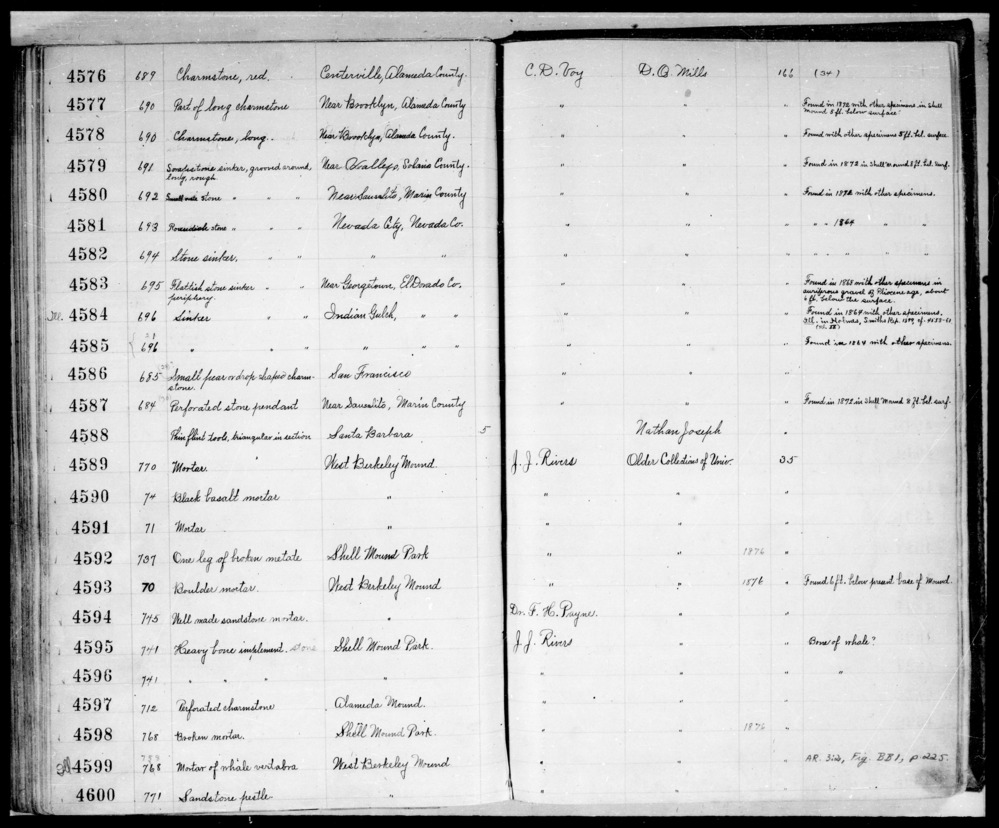 4576 689 Charmstone, red. Centerville, Alameda County. C. D. Voy D. O. Mills 166 (34)
4577 690 Part of long charmstone Near Brooklyn, Alameda County " " " Found in 1872 with other specimens in shell
mound 8 ft. below surface
4578 690 Charmstone, long. Near Brooklyn, Alameda County. " " " Found with other specimens 8 ft. bel. surface
4579 691 Soapstone sinker, ground around Near Vallejo, Solano County. " " " Found in 1872 in shell mound 8 ft. bel. surf.
long, rough
4580 692 stone " " " Near Sausalito, Marin County " " " Found in 1872 with other specimens.
4581 693 Roundish stone " " " Nevada City, Nevada Co. " " " " " 1864 " "
4582 694 Stone sinker. " " " " " " " " " " " "
4583 695 Flattish stone sinker " " Near Georgetown, El Dorado Co. " " " Found in 1865 with other specimens in
periphery. auriferous gravel of Pliocene age, about
6 ft. below the surface.
Ill. 4584 696 Sinker " " Indian Gulch, " " " " " Found in 1864 with other specimens.
Ill. in Holmes, Smiths Rep. 1899, of.
4585 696 " " " " " " " " " Found in 1864 with other specimens.
4586 685 Small pear or drop shaped charm- San Francisco " " "
stone.
4587 684 Perforated stone pendant Near Sausalito, Marin County " " " Found in 1872 in shell mound 8 ft. bel. surf.
4588 Thin flint tools, triangular in section Santa Barbara 5 Nathan Joseph "
4589 770 Mortar. West Berkeley Mound. J. J. Rivers Older Collections of Univ. 35
4590 74 Black basalt mortar " " " "
4591 71 Mortar " " " "
4592 737 One leg of broken metate Shell Mound Park " " 1876 "
4593 70 Boulder mortar. West Berkeley Mound " " 1876 " Found 6 ft. below present base of Mound.
4594 745 Well made sandstone mortar. " Dr. F. H. Payne. " "
4595 741 Heavy bone implement. stone Shell Mound Park. J. J. Rivers " " Bone of whale?
4596 741 " " " " " " " "
4597 712 Perforated charmstone Alameda Mound. " " "
4598 768 Broken mortar. Shell Mound Park. " " 1876 "
4599 768 Mortar of whale vertebra West Berkeley Mound " " " AR. 312, Fig. BB1, p. 225.
4600 771 Sandstone pestle " " " "